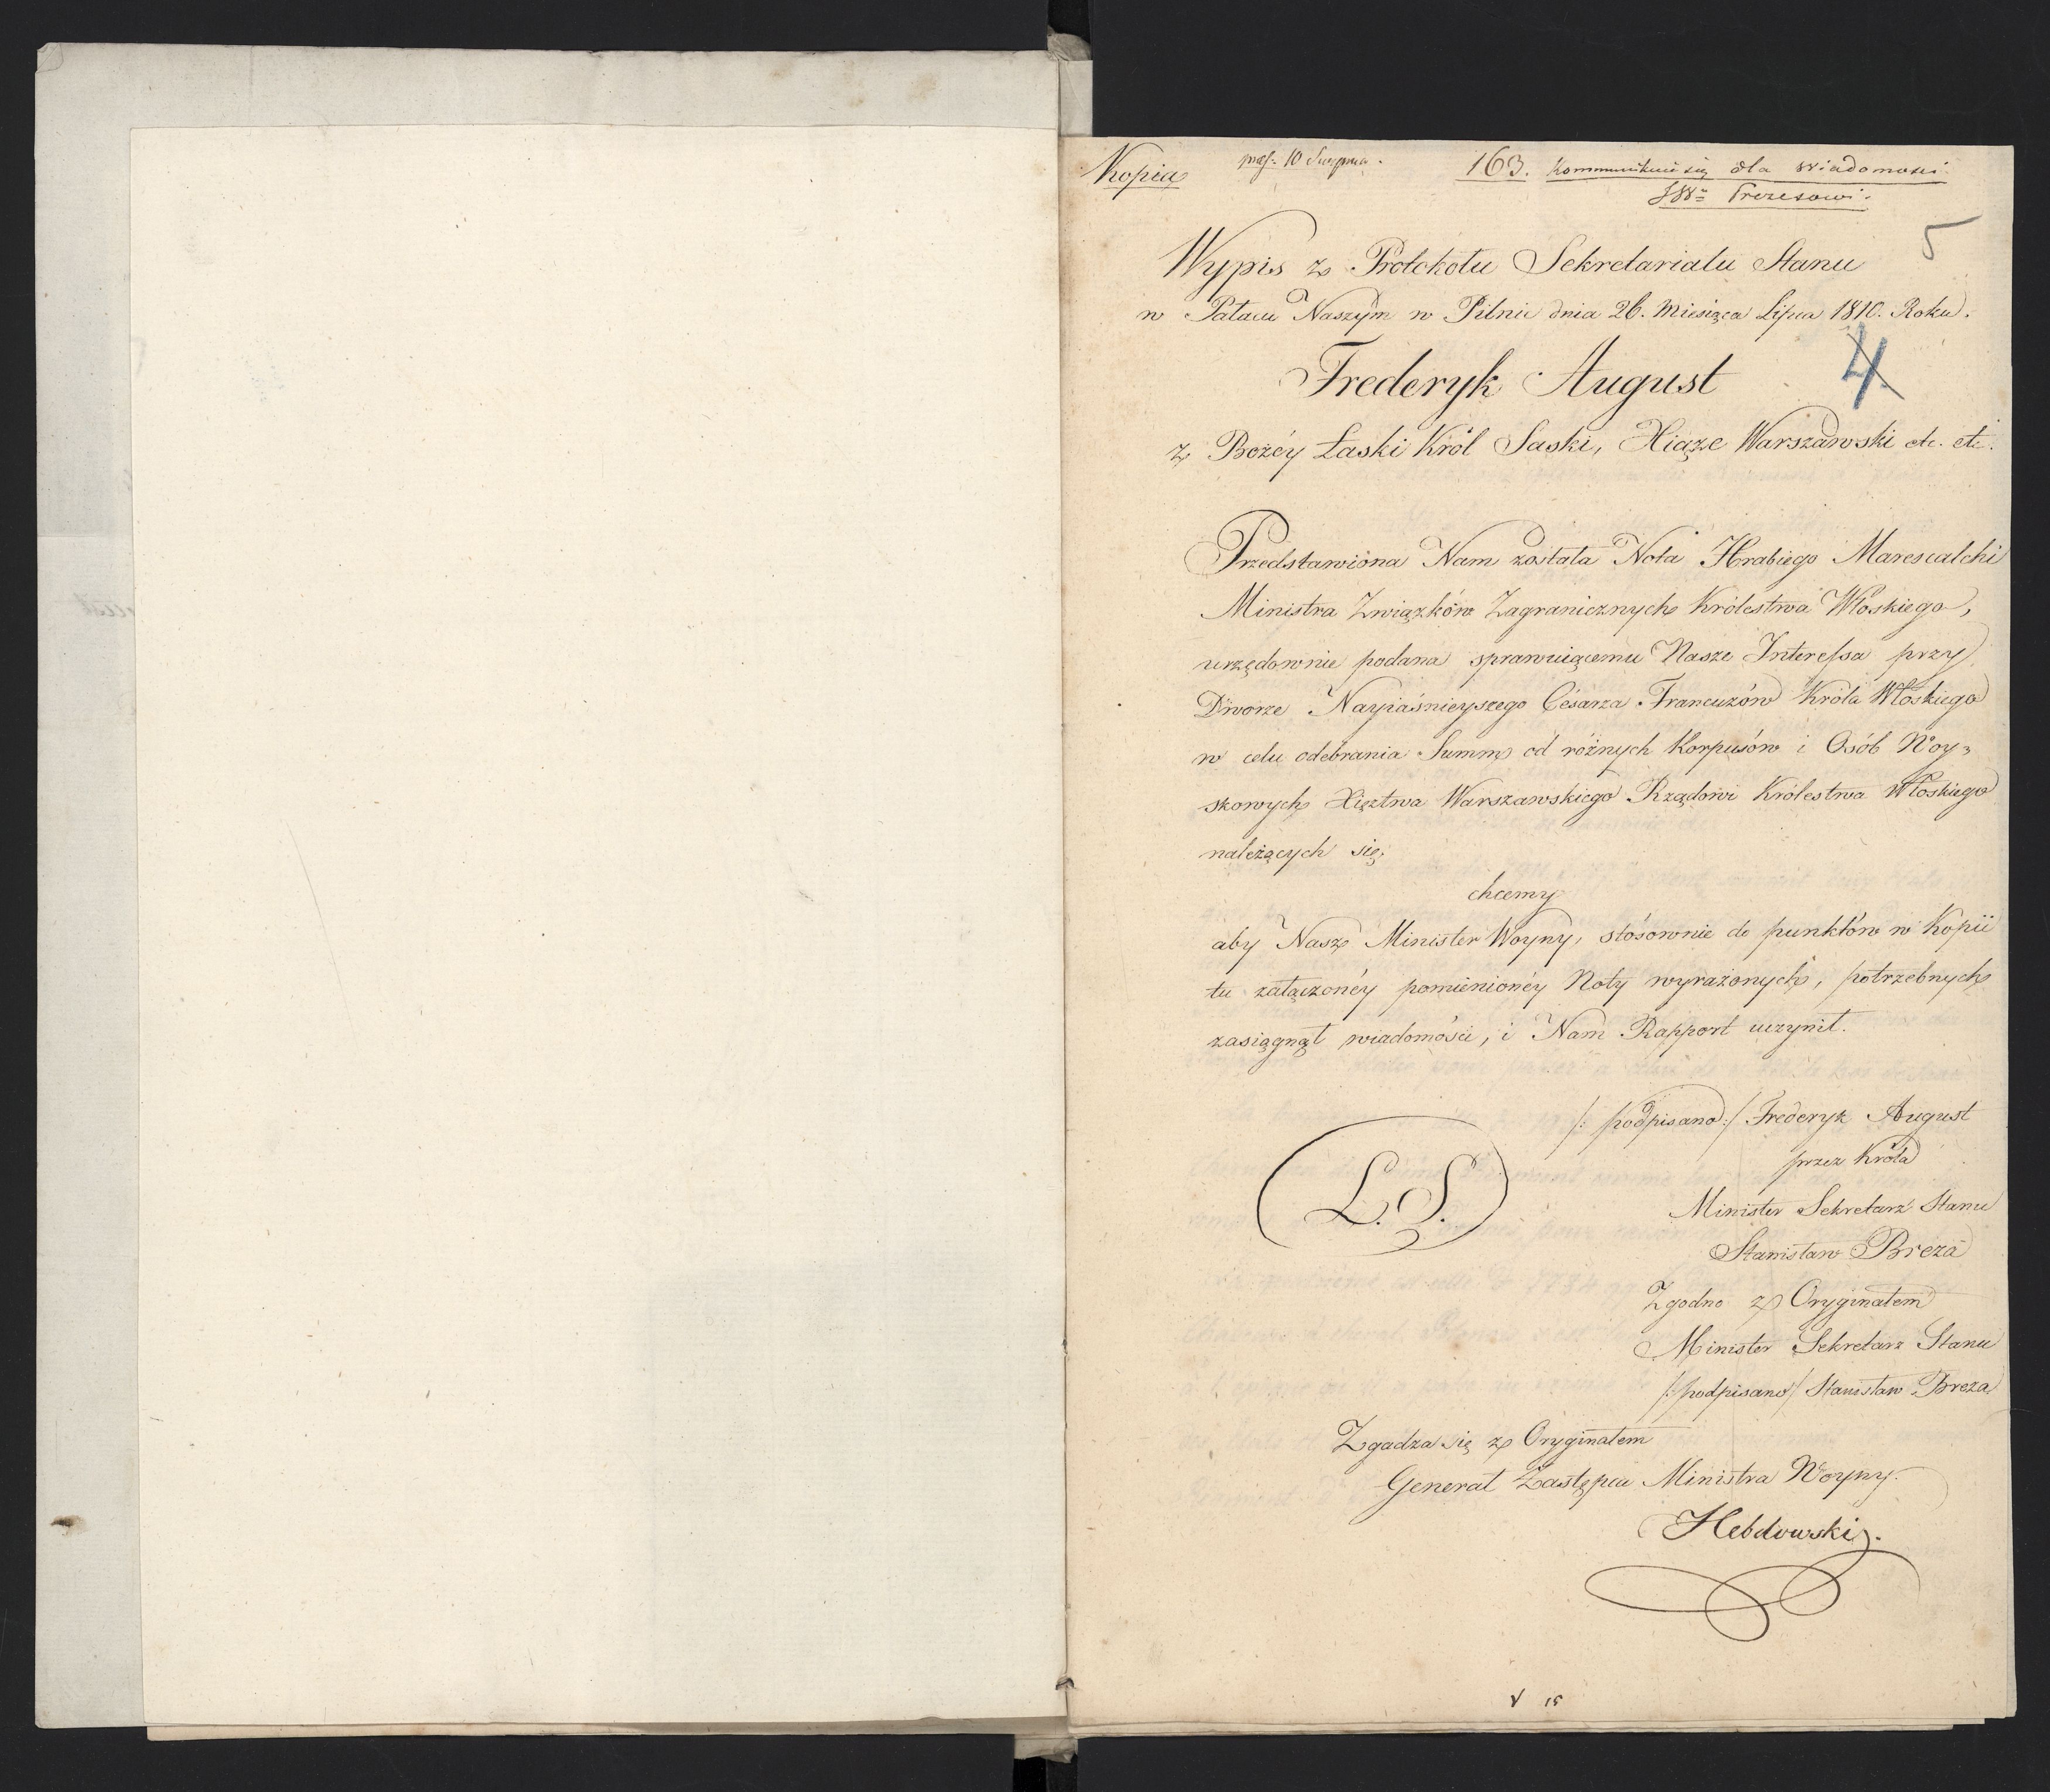 Kopia
præs: 10 Sierpnia.
163. Kommunikuie się dla wiadomości
JW= Prezesowi.
5
Wypis z Protokołu Sekretariatu Stanu
w Pałacu Naszym w Pilnic dnia 26. Miesiąca Lipca 1810. Roku.
4
Frederyk August
z Bożéy Łaski Król Saski, Xiąże Warszawski etc. etc.
Przedstawiona Nam została Nota Hrabiego Marescalchi
Ministra Związków Zagranicznych Królestwa Włoskiego,
urzędownie podana sprawuiącemu Nasze Interessa przy
Dworze Nayiaśnieyszego Césarza Francuzów Króla Włoskiego
w celu odebrania Summ od różnych Korpusów i Osób Woy-
skowych Xięztwa Warszawskiego Rządowi Królestwa Włoskiego
należących się;
chcemy
aby Nasz Minister Woyny, stósownie do punktów w Kopii
tu załączonéy pomienionéy Noty wyrażonych, potrzebnych
zasiągnął wiadomości, i Nam Rapport uczynił.
/: podpisano :/ Frederyk August
przez Króla
L. S.
Minister Sekretarz Stanu
Stanisław Breza
Zgodno z Oryginałem
Minister Sekretarz Stanu
/: podpisano / Stanisław Breza
Zgadza się z Oryginałem
Generał Zastępca Ministra Woyny.
Hebdowski.